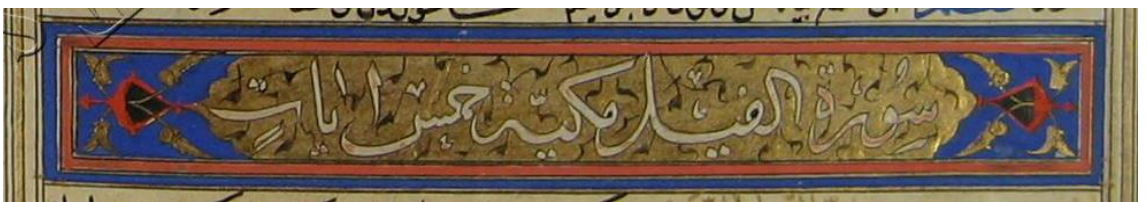 سُورة الفيل مكيّة خمس اياتٍ